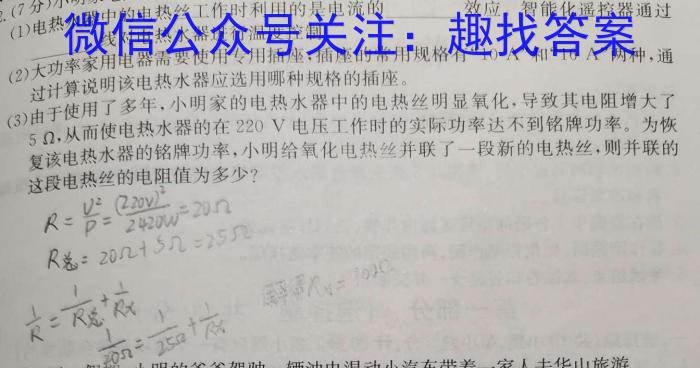 (7分)小明家
(1)电热水器中的电热丝工作时利用的是电流的 效应，智能化遥控器通过
微信公众号关注：趣找答案
(2)大功率家用电器需要使用专用插座，插座的常用规格有“10 A”和“16 A”两种，通
过计算说明该电热水器应选用哪种规格的插座。
(3)由于使用了多年，小明家的电热水器中的电热丝明显氧化，导致其电阻增大了
5 Ω，从而使电热水器的在 220 V 电压工作时的实际功率达不到铭牌功率。为恢
复该电热水器的铭牌功率，小明给氧化电热丝并联了一段新的电热丝，则并联的
这段电热丝的电阻值为多少？
R=U²/P=(220V)²/2420W=20Ω
R总=20Ω+5Ω=25Ω
解得Rx=100Ω
1/R=1/R总+1/Rx
1/20Ω=1/25Ω+1/Rx
小明的爸爸驾驶一辆油电混动小汽车带着一家人去华山旅游